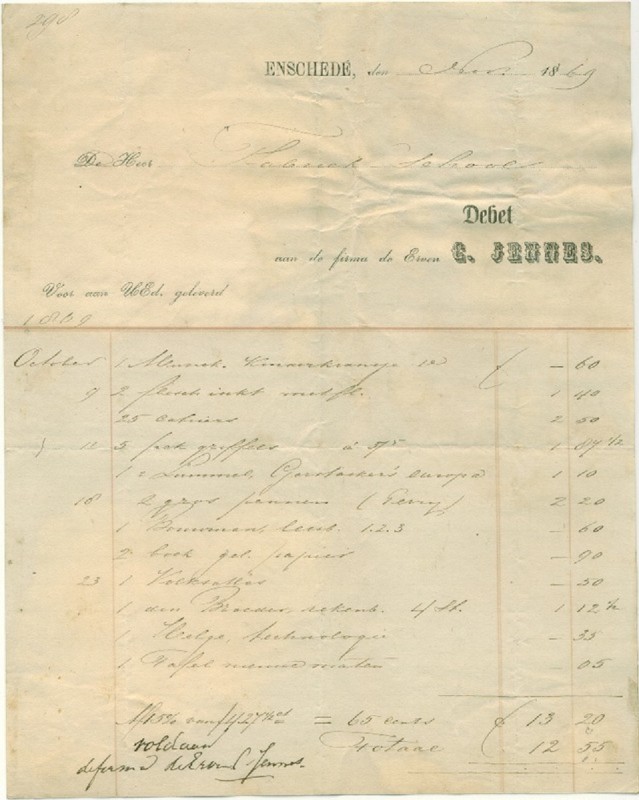 298
ENSCHEDÉ, den Nov. 1869
De Heer Fabriek Schools
Debet
aan de firma de Erven G. JENNES.
Voor aan UEd. geleverd
1869
October 1 - 60
9 2 flesch inkt met fl. 1 40
25 cahiers 2 50
12 5 pak griffels à 37⁵ 1 87 ½
1 Lummel, europa 1 10
18 2 gros pennen (Perry) 2 20
1 Bouwman, leesb. 1.2.3 - 60
2 boek gel. papier - 90
23 1 Volksatlas - 50
1 den Broeder, rekenb. 4 st. 1 12 ½
1 technologie - 35
1 Tafel nieuwe maten - 05
15% van = 65 cents ƒ 13 20
Totaal ƒ 12 55
voldaan
de firma de Erven G. Jennes.